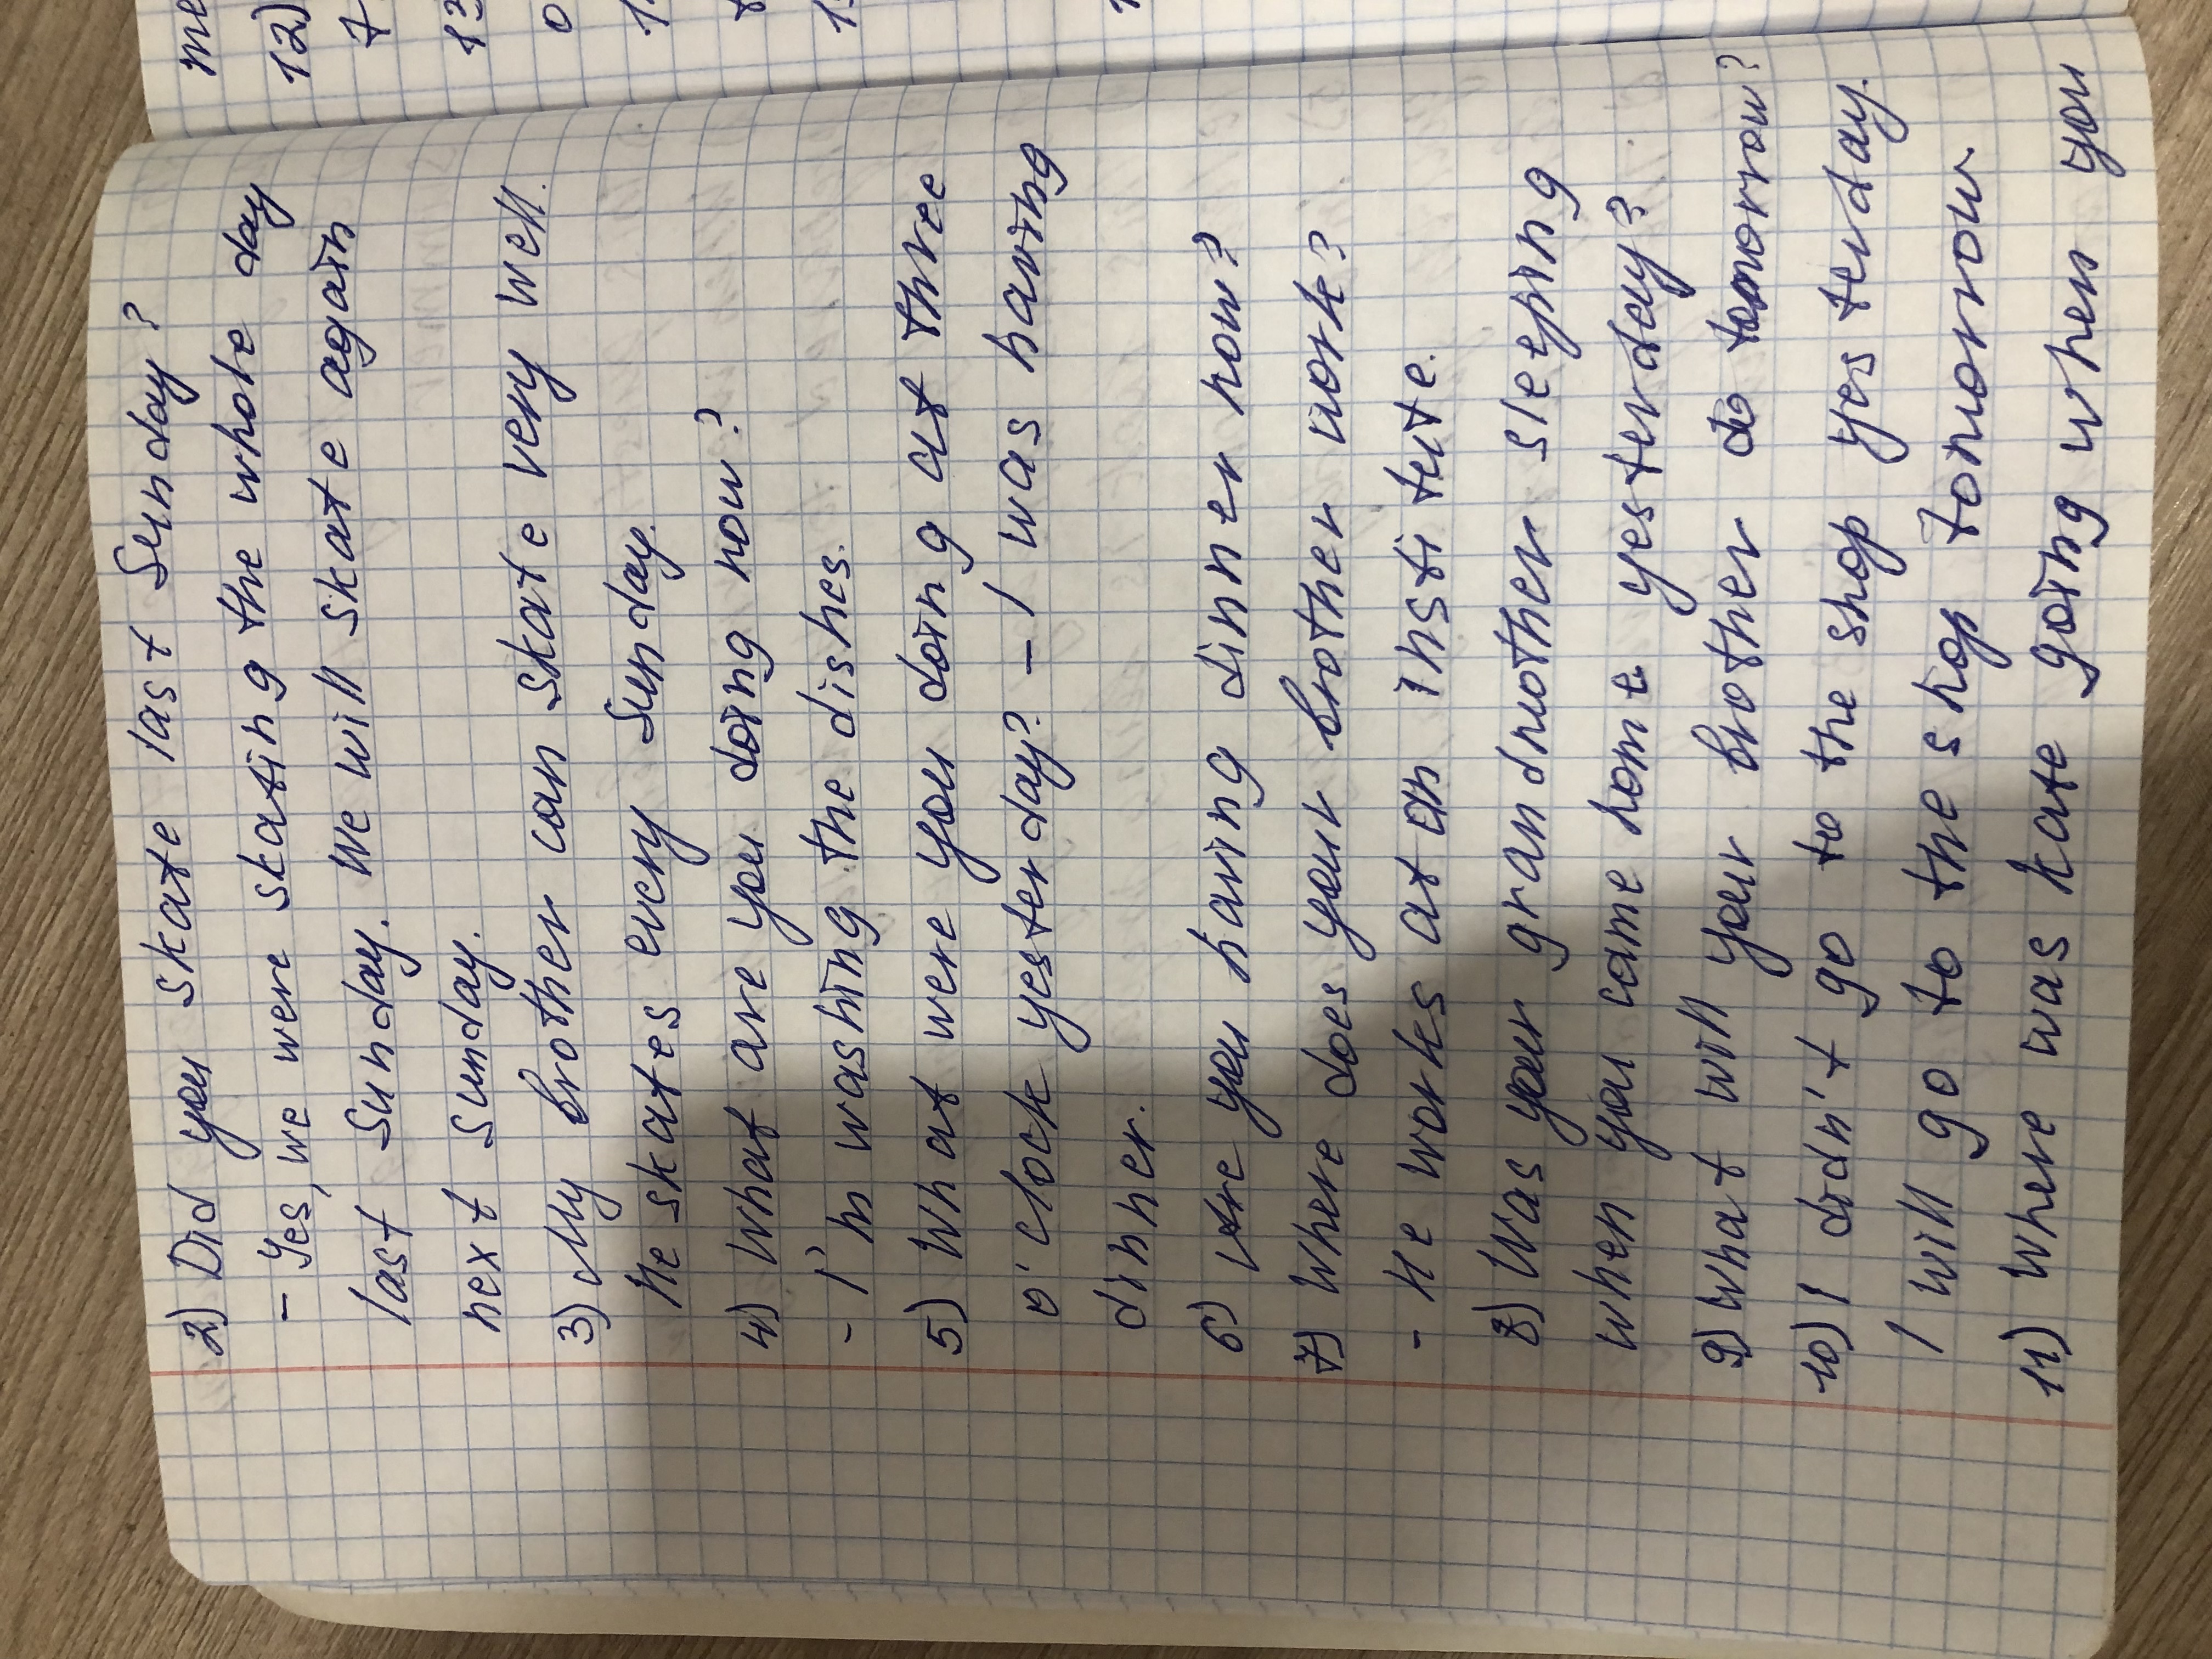 2) Did you skate last Sunday?
- Yes, we were skating the whole day
last Sunday. We will skate again
next Sunday.
3) My brother can skate very well.
He skates every Sunday.
4) What are you doing now?
- I'm washing the dishes.
5) What were you doing at three
o'clock yesterday? - I was having
dinner.
6) Are you having dinner now?
7) Where does your brother work?
- He works at an institute.
8) Was your grandmother sleeping
when you came home yesterday?
9) What will your brother do tomorrow?
10) I didn't go to the shop yesterday.
I will go to the shop tomorrow.
11) Where was Kate going when you
me
12)
7
13
o